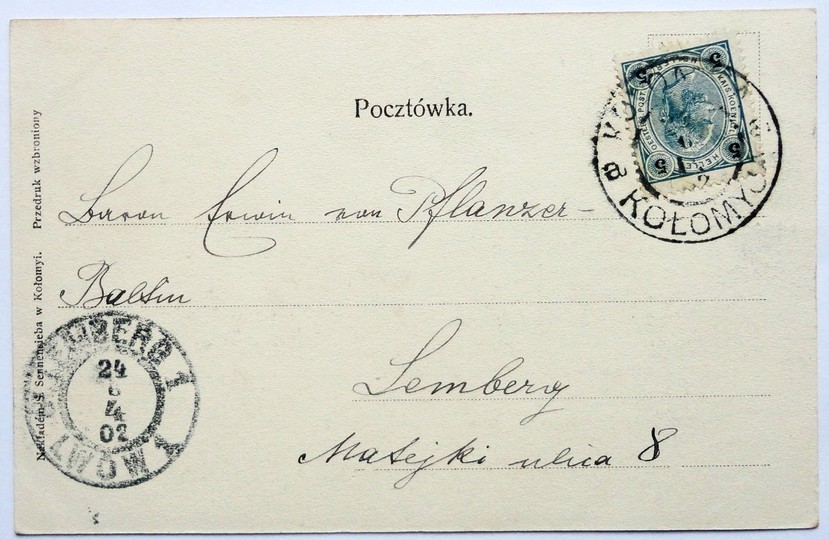 Pocztówka.
Baron Erwin von Pflanzer-
Baltin
Lemberg
Matejki ulica 8
Nakładem S. Sennensieba w Kołomyi. Przedruk wzbroniony
KOŁOMY
5 5
5 5
HELLER
LEMBERG 1
24
4
02
LWÓW 1